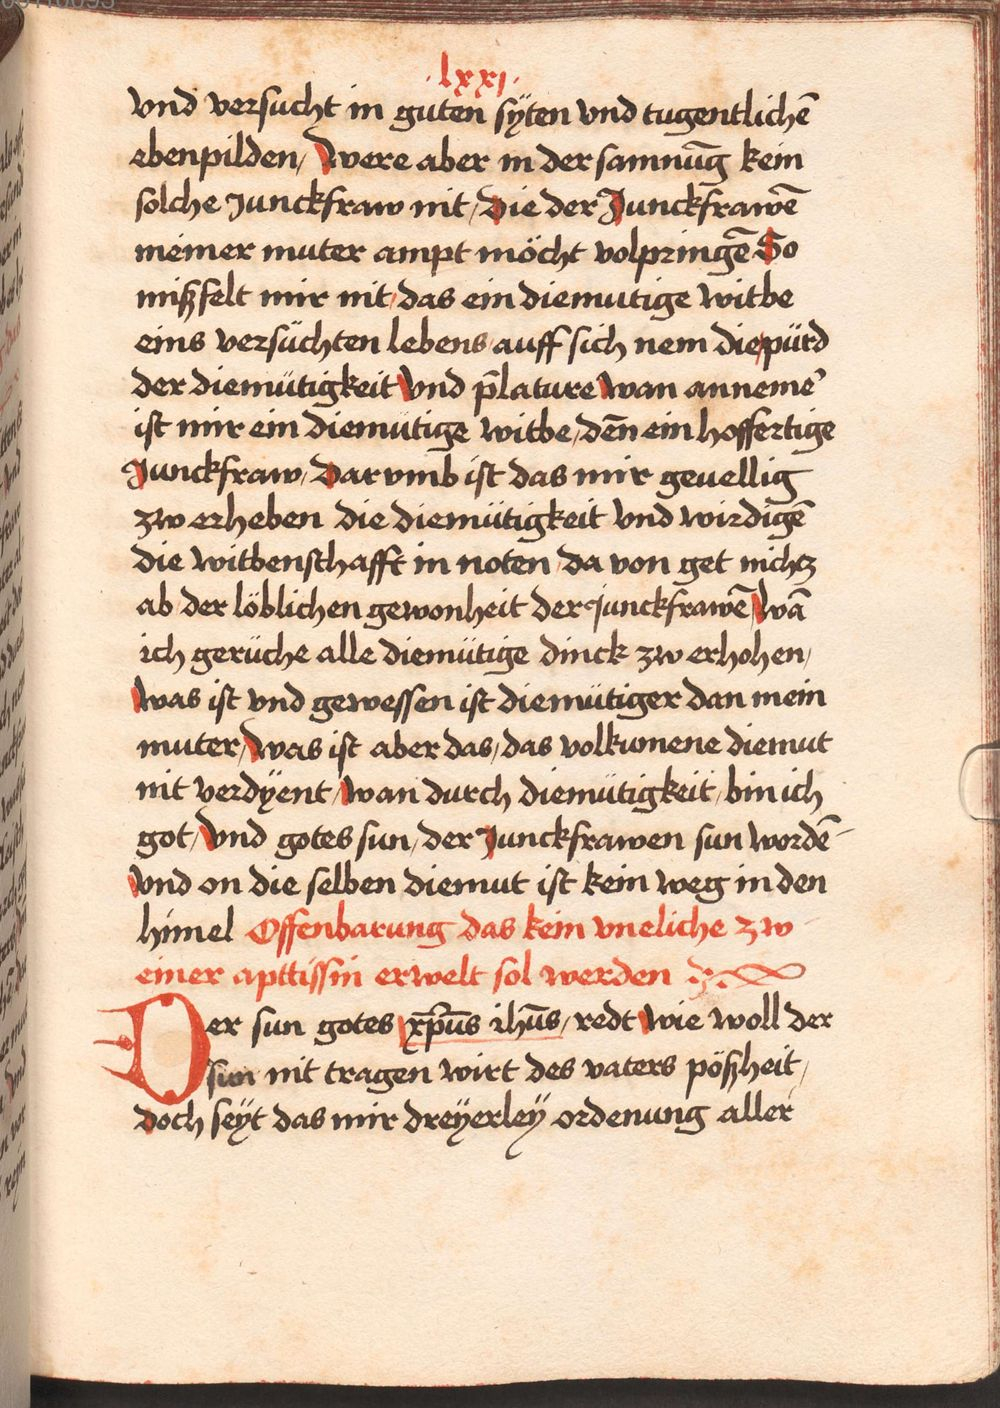 ·lxxj·
vnd versucht in guten sÿten vnd tugentlichē
ebenpilden, Were aber in der samnūg kein
solche Junckfraw nit, Die der Junckfrawē
meiner muter ampt möcht volpringē So
mißfelt mir nit, das ein diemutige witbe
eins versüchten lebens auff sich nem die pürd
der diemütigkeit Vnd p̄lature Wan anneme᾽
ist mir ein diemütige witbe, den̄ ein hoffertige
Junckfraw, Dar vmb ist das mir geuellig
zw erheben die diemütigkeit vnd wirdigē
die witbenschafft in noten, da von get nichz
ab der löblichen gewonheit der Junckfrawē, Wā
ich gerüche alle diemütige dinck zw erhohen,
Was ist vnd gewessen ist diemütiger dan mein
muter, Was ist aber das, das volkumene diemut
nit verdÿent, Wan durch diemütigkeit, bin ich
got, Vnd gotes sun, der Junckfrawen sun wordē
Vnd on die selben diemut ist kein weg in den
himel Offenbarung das kein vneliche zw
einer apttissin erwelt sol werden
Der sun gotes xp̄us ihūs, redt Wie woll der
sun nit tragen wirt des vaters pößheit,
doch seÿt das mir dreÿerleÿ ordenung aller